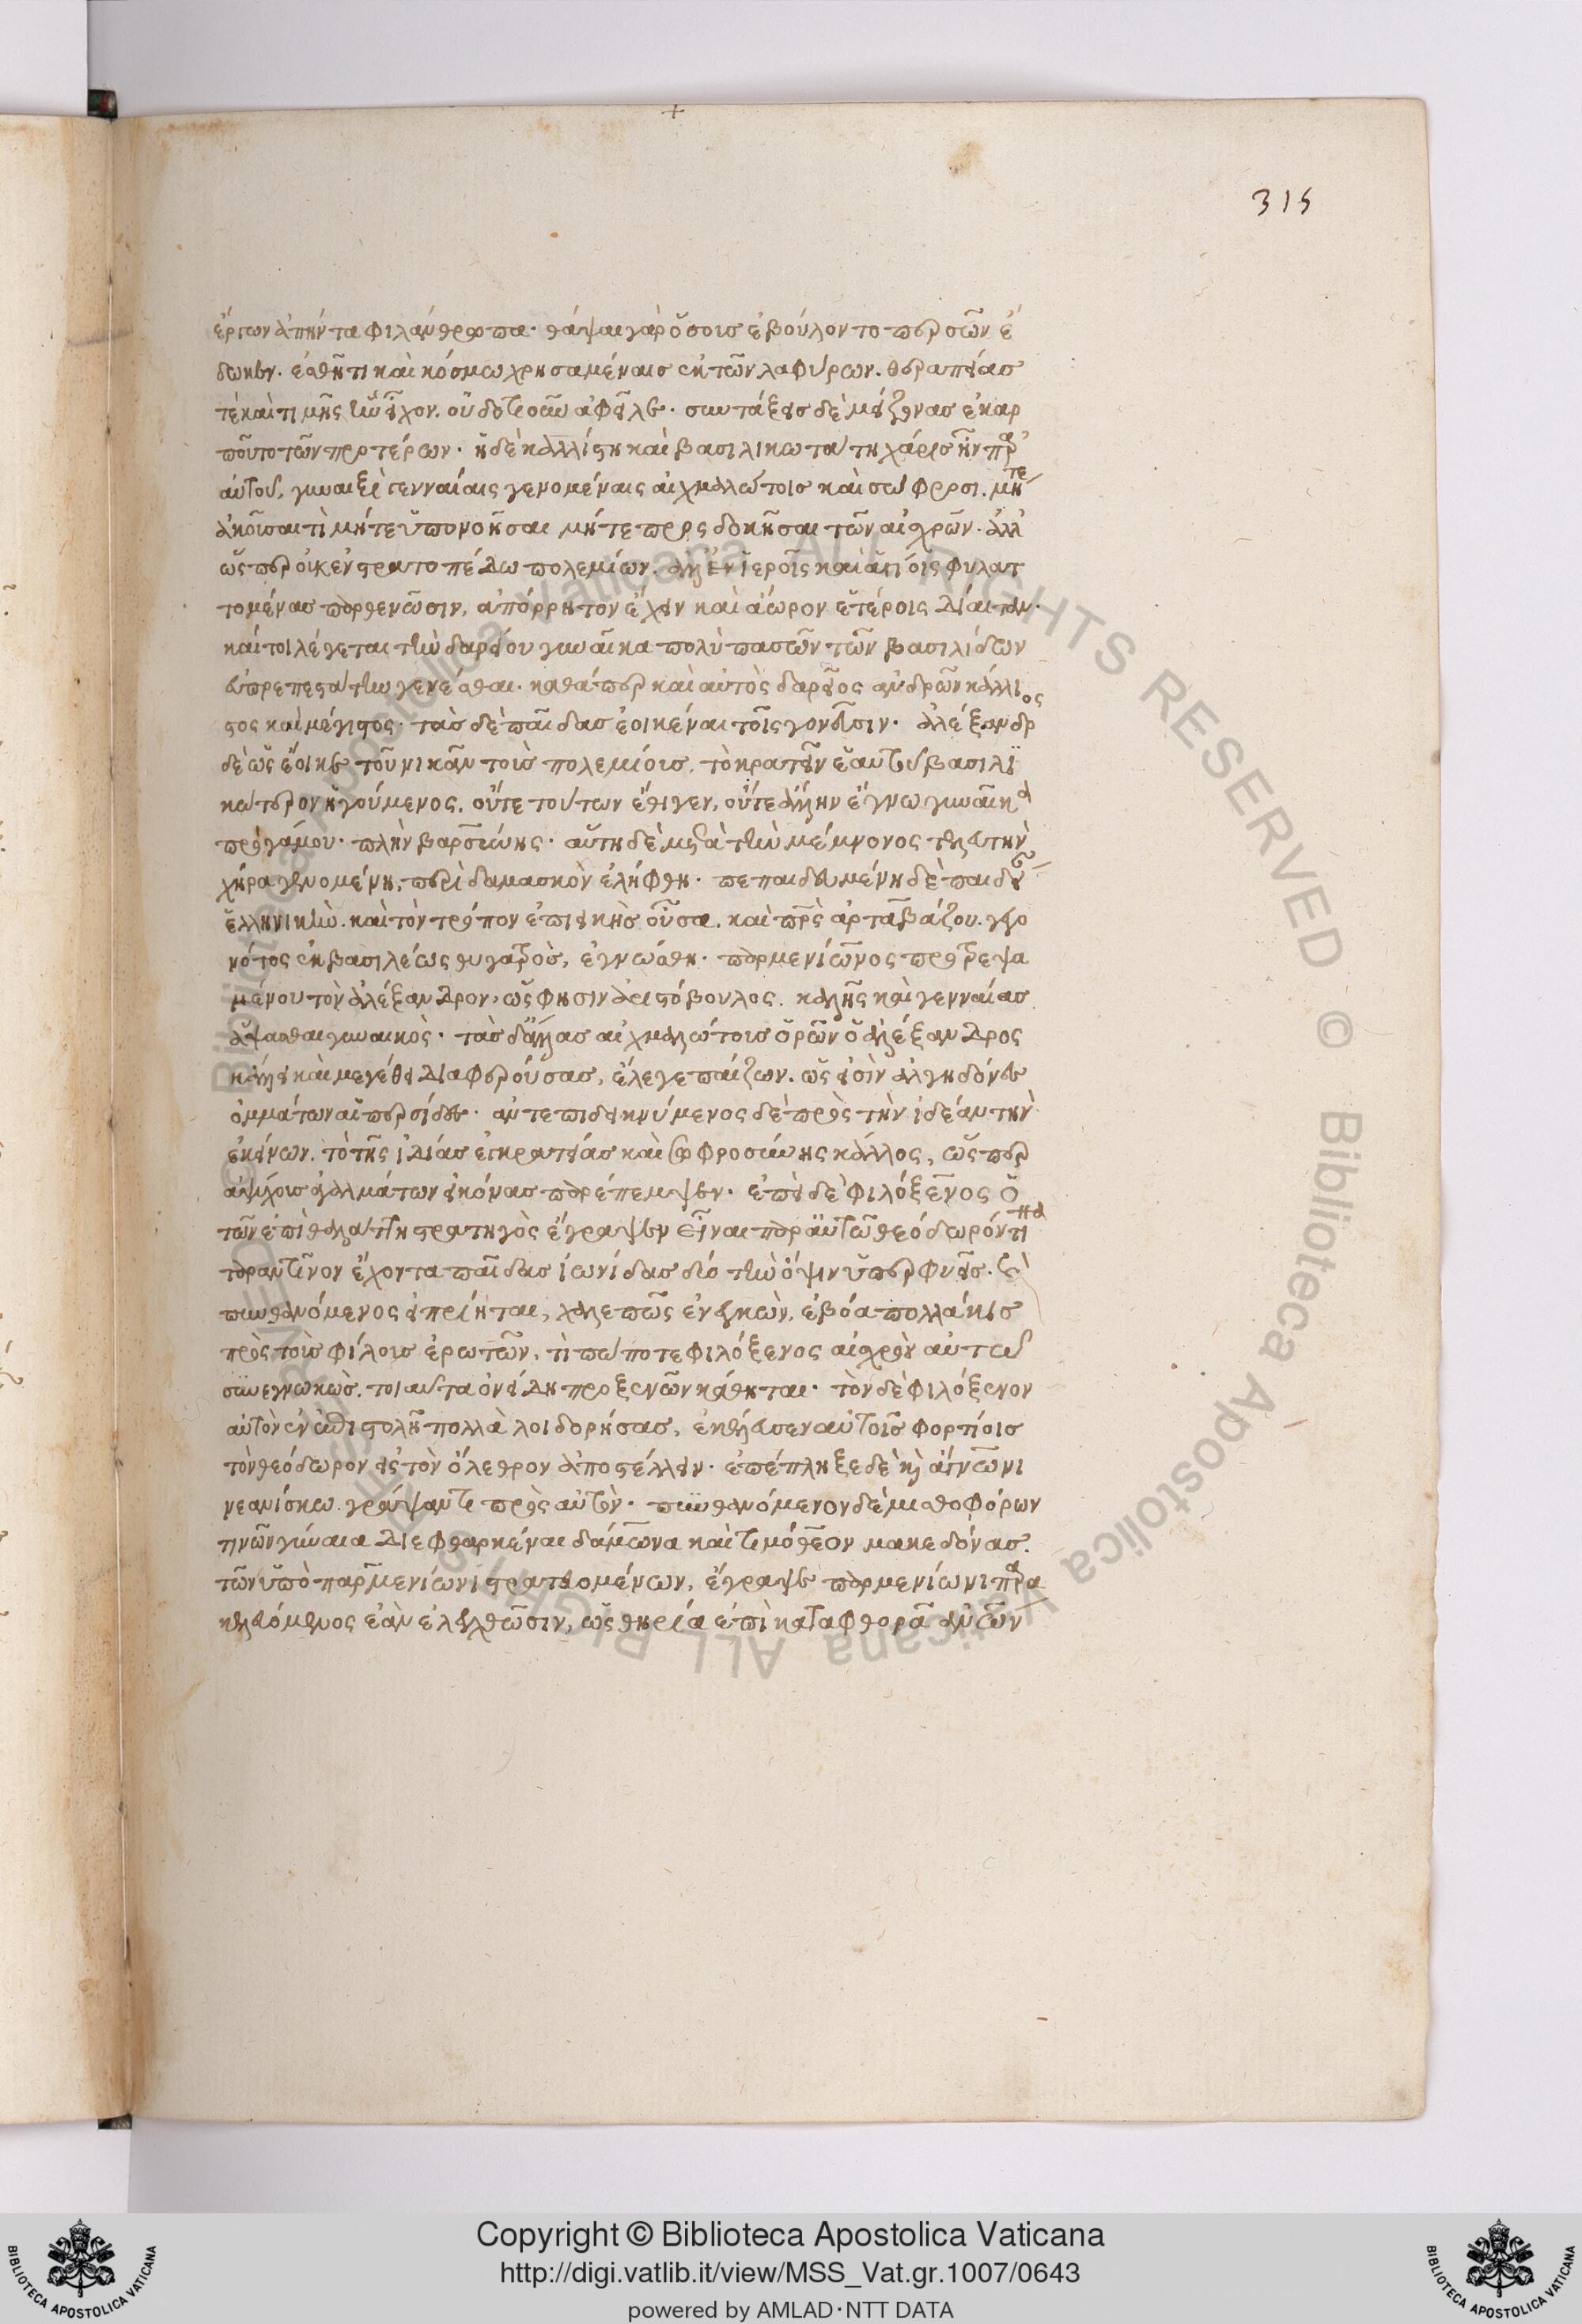 315
ἔργων ἀπήντα φιλάνθρωπα· θάψαι γὰρ ὅσους ἐβούλοντο περσῶν ἔ
δωκεν. ἐσθῆτι καὶ κόσμω χρησαμέναις ἐκ τῶν λαφύρων. θεραπείας
τὲ καὶ τιμῆς ἣν εἶχον. οὐδοτιοῦν ἀφεῖλε· συντάξεις δὲ μείζονας ἐκαρ
ποῦντο τῶν προτέρων· ἡ δὲ καλλίστη καὶ βασιλικωτάτη χάρις ἦν παρ
αὐτοῦ, γυναιξὶ γενναίαις γενομέναις αἰχμαλώτοις καὶ σώφροσι. μήτε
ἀκοῦσαι τὶ μήτε ὑπονοῆσαι μήτε προσδοκῆσαι τῶν αἰσχρῶν· ἀλλ
ὥσπερ οὐκ ἐν στρατοπέδω πολεμίων. ἀλλ ἐν ἱεροῖς καὶ ἁγίοις φυλατ
τομένας παρθενῶσιν, ἀπόρρητον ἔχειν καὶ ἀώρον ἑτέροις δίαιταν·
καίτοι λέγεται τὴν δαρείου γυναῖκα πολὺ πασῶν τῶν βασιλίδων
εὐπρεπεστάτην γενέσθαι· καθάπερ καὶ αὐτὸς δαρεῖος ἀνδρῶν κάλλι
στος καὶ μέγιστος· τὰς δὲ παῖδας ἐοικέναι τοῖς γονεῦσιν· ἀλέξανδρος
δὲ ὡς ἔοικε τοῦ νικᾶν τοὺς πολεμίους. τὸ κρατεῖν ἑαυτοῦ βασιλι
κώτερον ἡγούμενος, οὔτε τούτων ἔθιγεν, οὔτε ἄλλην ἔγνω γυναῖκα
πρὸ γάμου· πλὴν βαρσίνης· αὕτη δὲ μετὰ τὴν μέμνονος τελευτὴν
χήρα γενομένη, περὶ δαμασκὸν ἐλήφθη· πεπαιδευμένη δὲ παιδείαν
ἑλληνικὴν. καὶ τὸν τρόπον ἐπιεικὴς οὖσα. καὶ πρὸς ἀρταβάζου. γεγο
νότος ἐκ βασιλέως θυγατρὸς, ἐγνώσθη· παρμενίωνος προτρεψα
μένου τὸν ἀλέξανδρον, ὥς φησιν ἀριστόβουλος. καλῆς καὶ γενναίας
ἅψασθαι γυναικὸς· τὰς δ ἄλλας αἰχμαλώτους ὁρῶν ὁ ἀλέξανδρος
κάλλει καὶ μεγέθει διαφερούσας, ἔλεγε παίζων. ὡς εἰσὶν ἀλγηδόνες
ὀμμάτων αἱ περσίδες· ἀντεπιδεικνύμενος δὲ πρὸς τὴν ἰδέαν τὴν
ἐκείνων. τὸ τῆς ἰδίας ἐγκρατείας καὶ σωφροσύνης κάλλος, ὥσπερ
ἀψύχους ἀγαλμάτων εἰκόνας παρέπεμψεν· ἐπεὶ δὲ φιλόξενος ὁ
τῶν ἐπὶ θαλάττη στρατηγὸς ἔγραψεν εἶναι παρ αὐτῶ θεόδωρόν τινα
ταραντῖνον ἔχοντα παῖδας ὠνίους δύο τὴν ὄψιν ὑπερφυεῖς. καὶ
πυνθανόμενος εἰ πρίηται, χαλεπῶς ἐνεγκὼν, ἐβόα πολλάκις
πρὸς τοὺς φίλους ἐρωτῶν, τί πώποτε φιλόξενος αἰσχρὸν αὐτῶ
συνεγνωκὼς. τοιαῦτα ὀνείδη προξενῶν κάθηται· τὸν δὲ φιλόξενον
αὐτὸν ἐν ἐπιστολῆ πολλὰ λοιδορήσας, ἐκέλευσεν αὐτοῖς φορτίοις
τὸν θεόδωρον εἰς τὸν ὄλεθρον ἀποστέλλειν· ἐπέπληξε δὲ καὶ ἅγνωνι
νεανίσκω. γράψαντι πρὸς αὐτὸν· πυνθανόμενον δὲ μισθοφόρων
τινῶν γύναια διεφθαρκέναι δάμωνα καὶ τιμόθεον μακεδόνας.
τῶν ὑπὸ παρμενίωνι στρατευομένων, ἔγραψε παρμενίωνι παρα
κελευόμενος ἐὰν ἐλεγχθῶσιν, ὡς θηρία ἐπὶ καταφθορᾶ ἀνθρώπων
Copyright © Biblioteca Apostolica Vaticana
http://digi.vatlib.it/view/MSS_Vat.gr.1007/0643
powered by AMLAD·NTT DATA